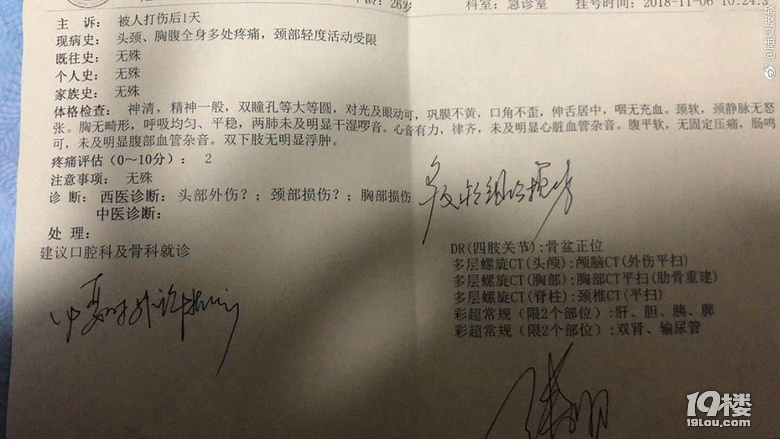 26岁
科室：急诊室
挂号时间：2018-11-06 10:24:3
主 诉： 被人打伤后1天
现病史： 头颈、胸腹全身多处疼痛，颈部轻度活动受限
既往史： 无殊
个人史： 无殊
家族史： 无殊
体格检查： 神清，精神一般，双瞳孔等大等圆，对光及眼动可，巩膜不黄，口角不歪，伸舌居中，咽无充血。颈软，颈静脉无怒
张。胸无畸形，呼吸均匀、平稳，两肺未及明显干湿啰音。心音有力，律齐，未及明显心脏血管杂音。腹平软，无固定压痛，肠鸣
可，未及明显腹部血管杂音。双下肢无明显浮肿。
疼痛评估（0～10分）： 2
注意事项： 无殊
诊 断： 西医诊断：头部外伤？；颈部损伤？；胸部损伤
中医诊断：
处 理：
建议口腔科及骨科就诊
DR(四肢关节):骨盆正位
多层螺旋CT(头颅):颅脑CT(外伤平扫)
多层螺旋CT(胸部):胸部CT平扫(肋骨重建)
多层螺旋CT(脊柱):颈椎CT(平扫)
彩超常规（限2个部位）:肝、胆、胰、脾
彩超常规（限2个部位）:双肾、输尿管
19楼
19lou.com